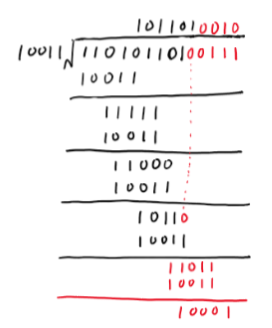 1011010010
10011√11010110100111
10011
11111
10011
11000
10011
10110
10011
11011
10011
10001